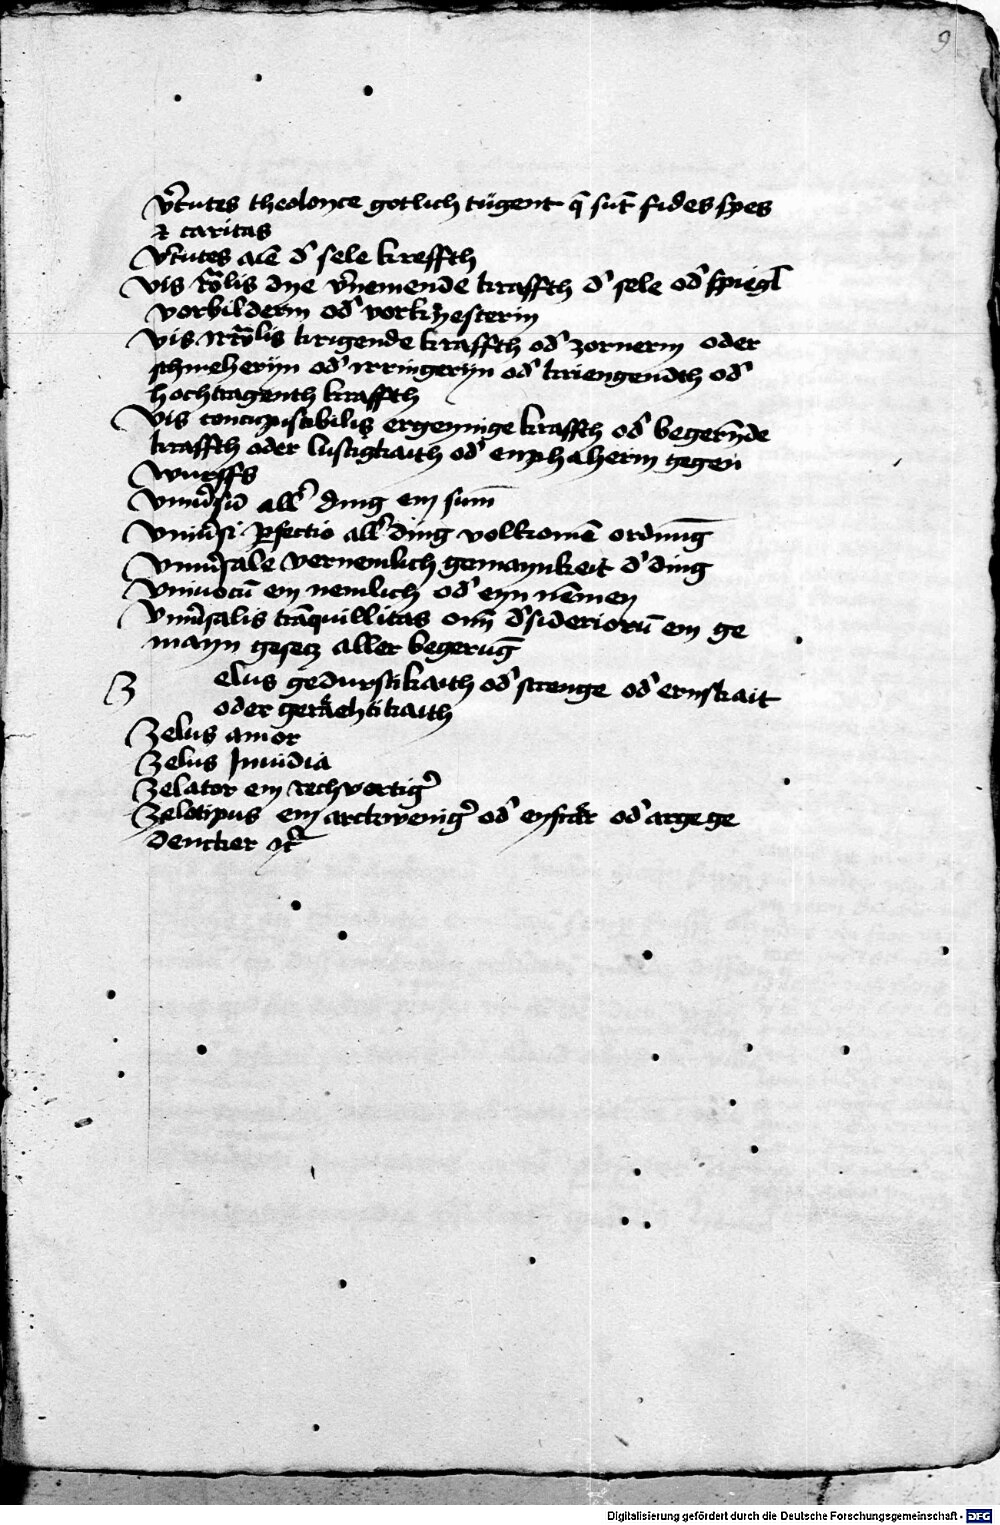 9
v̄tutes theoloyce gotlich tugent q̄ sūt fides spes
⁊ caritas
v̄tutes aīe d' sele kreffth
vis rōlis dye v̄nemende kraffth d' sele od' spiegl
vorbilderin od' vorkyesterin
vis irōlis krigende kraffth od' zornerin oder
schmeheryn od' irringeryn od' kriengendth od'
hochtragenth kraffth
vis concupiscibilis ergeynige kraffth od' begern̄de
kraffth oder lustigkaith od' enphaherin gegen
wurffs
vniu'sū all' ding ein sum̄
vniu'si p̱fectio all' ding volkomē ordnūg
vniu'sale vernemlich gemaynkeit d' ding
vniuocū ein nemlich od' eyn nēmen
vniu'salis trāquillitas om̄ d'siderioru̅ ein ge
mayn gesecz aller begerūg
Z elus gedurstikaith od' strenge od' ernstkait
oder gerāchtikaith
Zelus amor
Zelus Inuidia
Zelator ein rechvertig'
Zelotipus ein arckwenig' od' od' arge ge
dencker
Digitalisierung gefördert durch die Deutsche Forschungsgemeinschaft - DFG